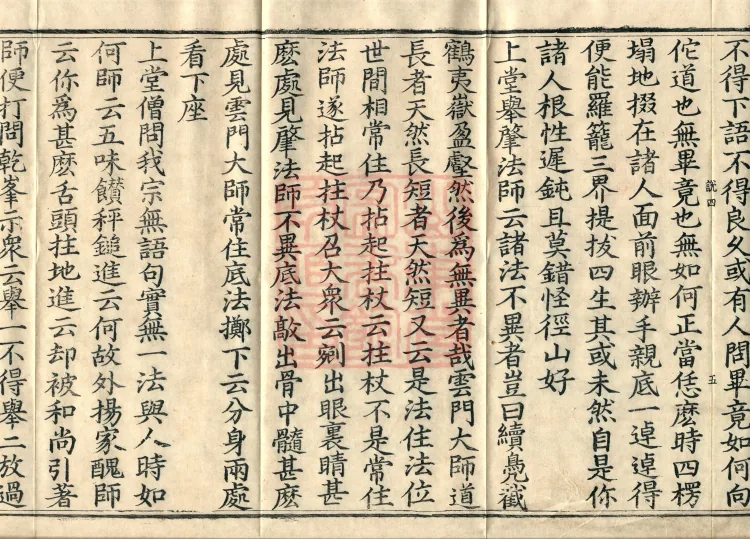 不得下語不得良久或有人問畢竟如何向
佗道也無畢竟也無如何正當恁麽時四楞
塌地掇在諸人面前眼辦手親底一逴逴得
便能羅籠三界提拔四生其或未然自是你
諸人根性遲鈍且莫錯怪徑山好
上堂舉肇法師云諸法不異者豈曰續鳧截
鶴夷嶽盈壑然後爲無異者哉雲門大師道
長者天然長短者天然短又云是法住法位
世間相常住乃拈起拄杖云拄杖不是常住
法師遂拈起拄杖召大衆云剜出眼裏睛甚
麽處見肇法師不異底法敲出骨中髓甚麽
處見雲門大師常住底法擲下云分身兩處
看下座
上堂僧問我宗無語句實無一法與人時如
何師云五味饡秤鎚進云何故外揚家醜師
云你爲甚麽舌頭拄地進云却被和尚引著
師便打問乾峯示衆云舉一不得舉二放過
說四
五